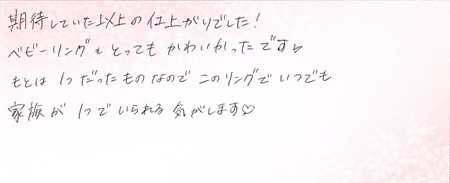 期待していた以上の仕上がりでした!
ベビーリングもとってもかわいかったです♡
もとは1つだったものなのでこのリングでいつでも
家族が1つでいられる気がします♡